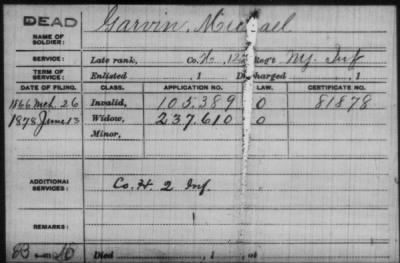 DEAD
NAME OF SOLDIER: Garvin, Michael
SERVICE: Late rank, Co. Reg't Inf
TERM OF SERVICE: Enlisted , 1 Discharged , 1
DATE OF FILING. CLASS. APPLICATION NO. LAW. CERTIFICATE NO.
1866 Mch. 26 Invalid, 105.389 O 81878
1878 June 13 Widow, 237.610 O
Minor,
ADDITIONAL SERVICES: Co. H. 2 Inf.
REMARKS:
Died , 1 , at